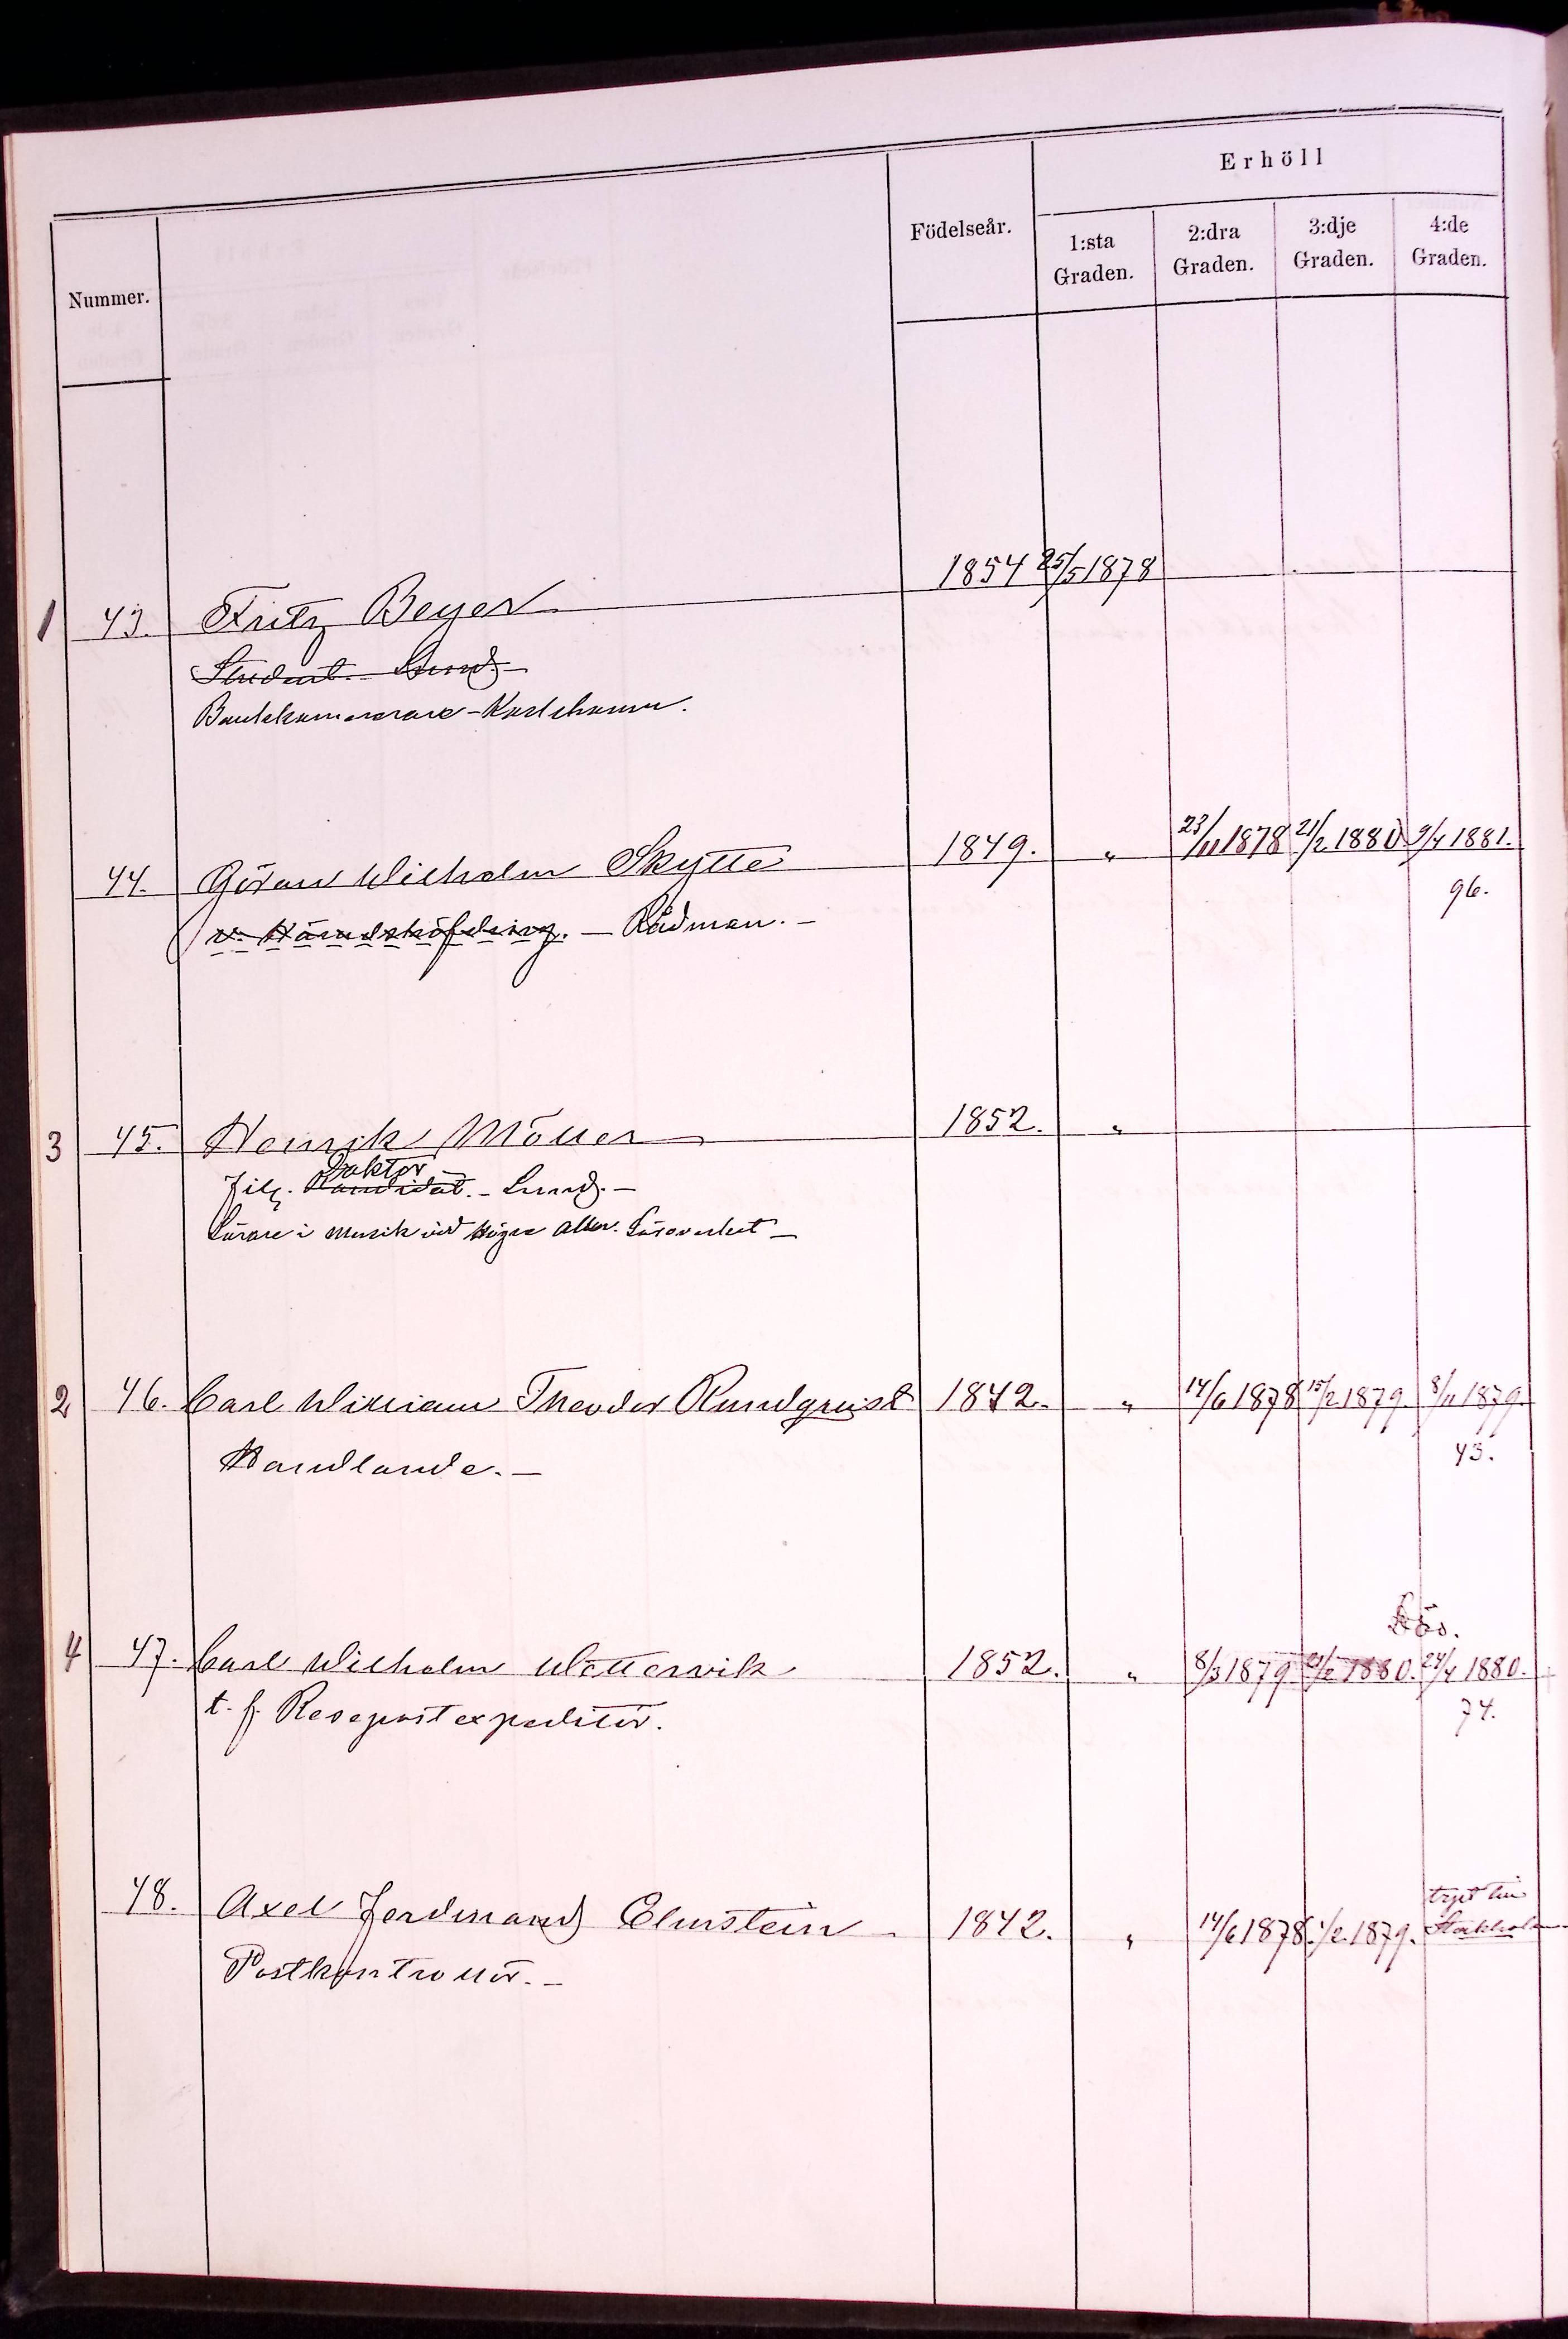 Erhöll
Nummer. Födelseår. 1:sta Graden. 2:dra Graden. 3:dje Graden. 4:de Graden.
1 43. Fritz Beyer 1854 25/5 1878
Student. Lund.
44. Göran Wilhelm Skytte 1849. „ 23/11 1878 21/2 1880. 9/4 1881.
96.
v. Häradshöfding. — Rådman. —
3 45. Henrik Möller 1852. „
Doktor
Fil. Kandidat. — Lund. —
Lärare i Musik vid Högre Allm. Läroverket —
2 46. Carl William Theodor Rundquist 1842. „ 14/6 1878 15/2 1879. 8/11 1879.
43.
Handlande. —
4 47. Carl Wilhelm Wettervik 1852. „ 8/3 1879. 21/2 1880. 24/4 1880.
74.
t. f. Resepostexpeditör.
48. Axel Ferdinand Elmstein 1842. „ 14/6 1878. 1/2 1879. Stockholm
Postkontrollör. —